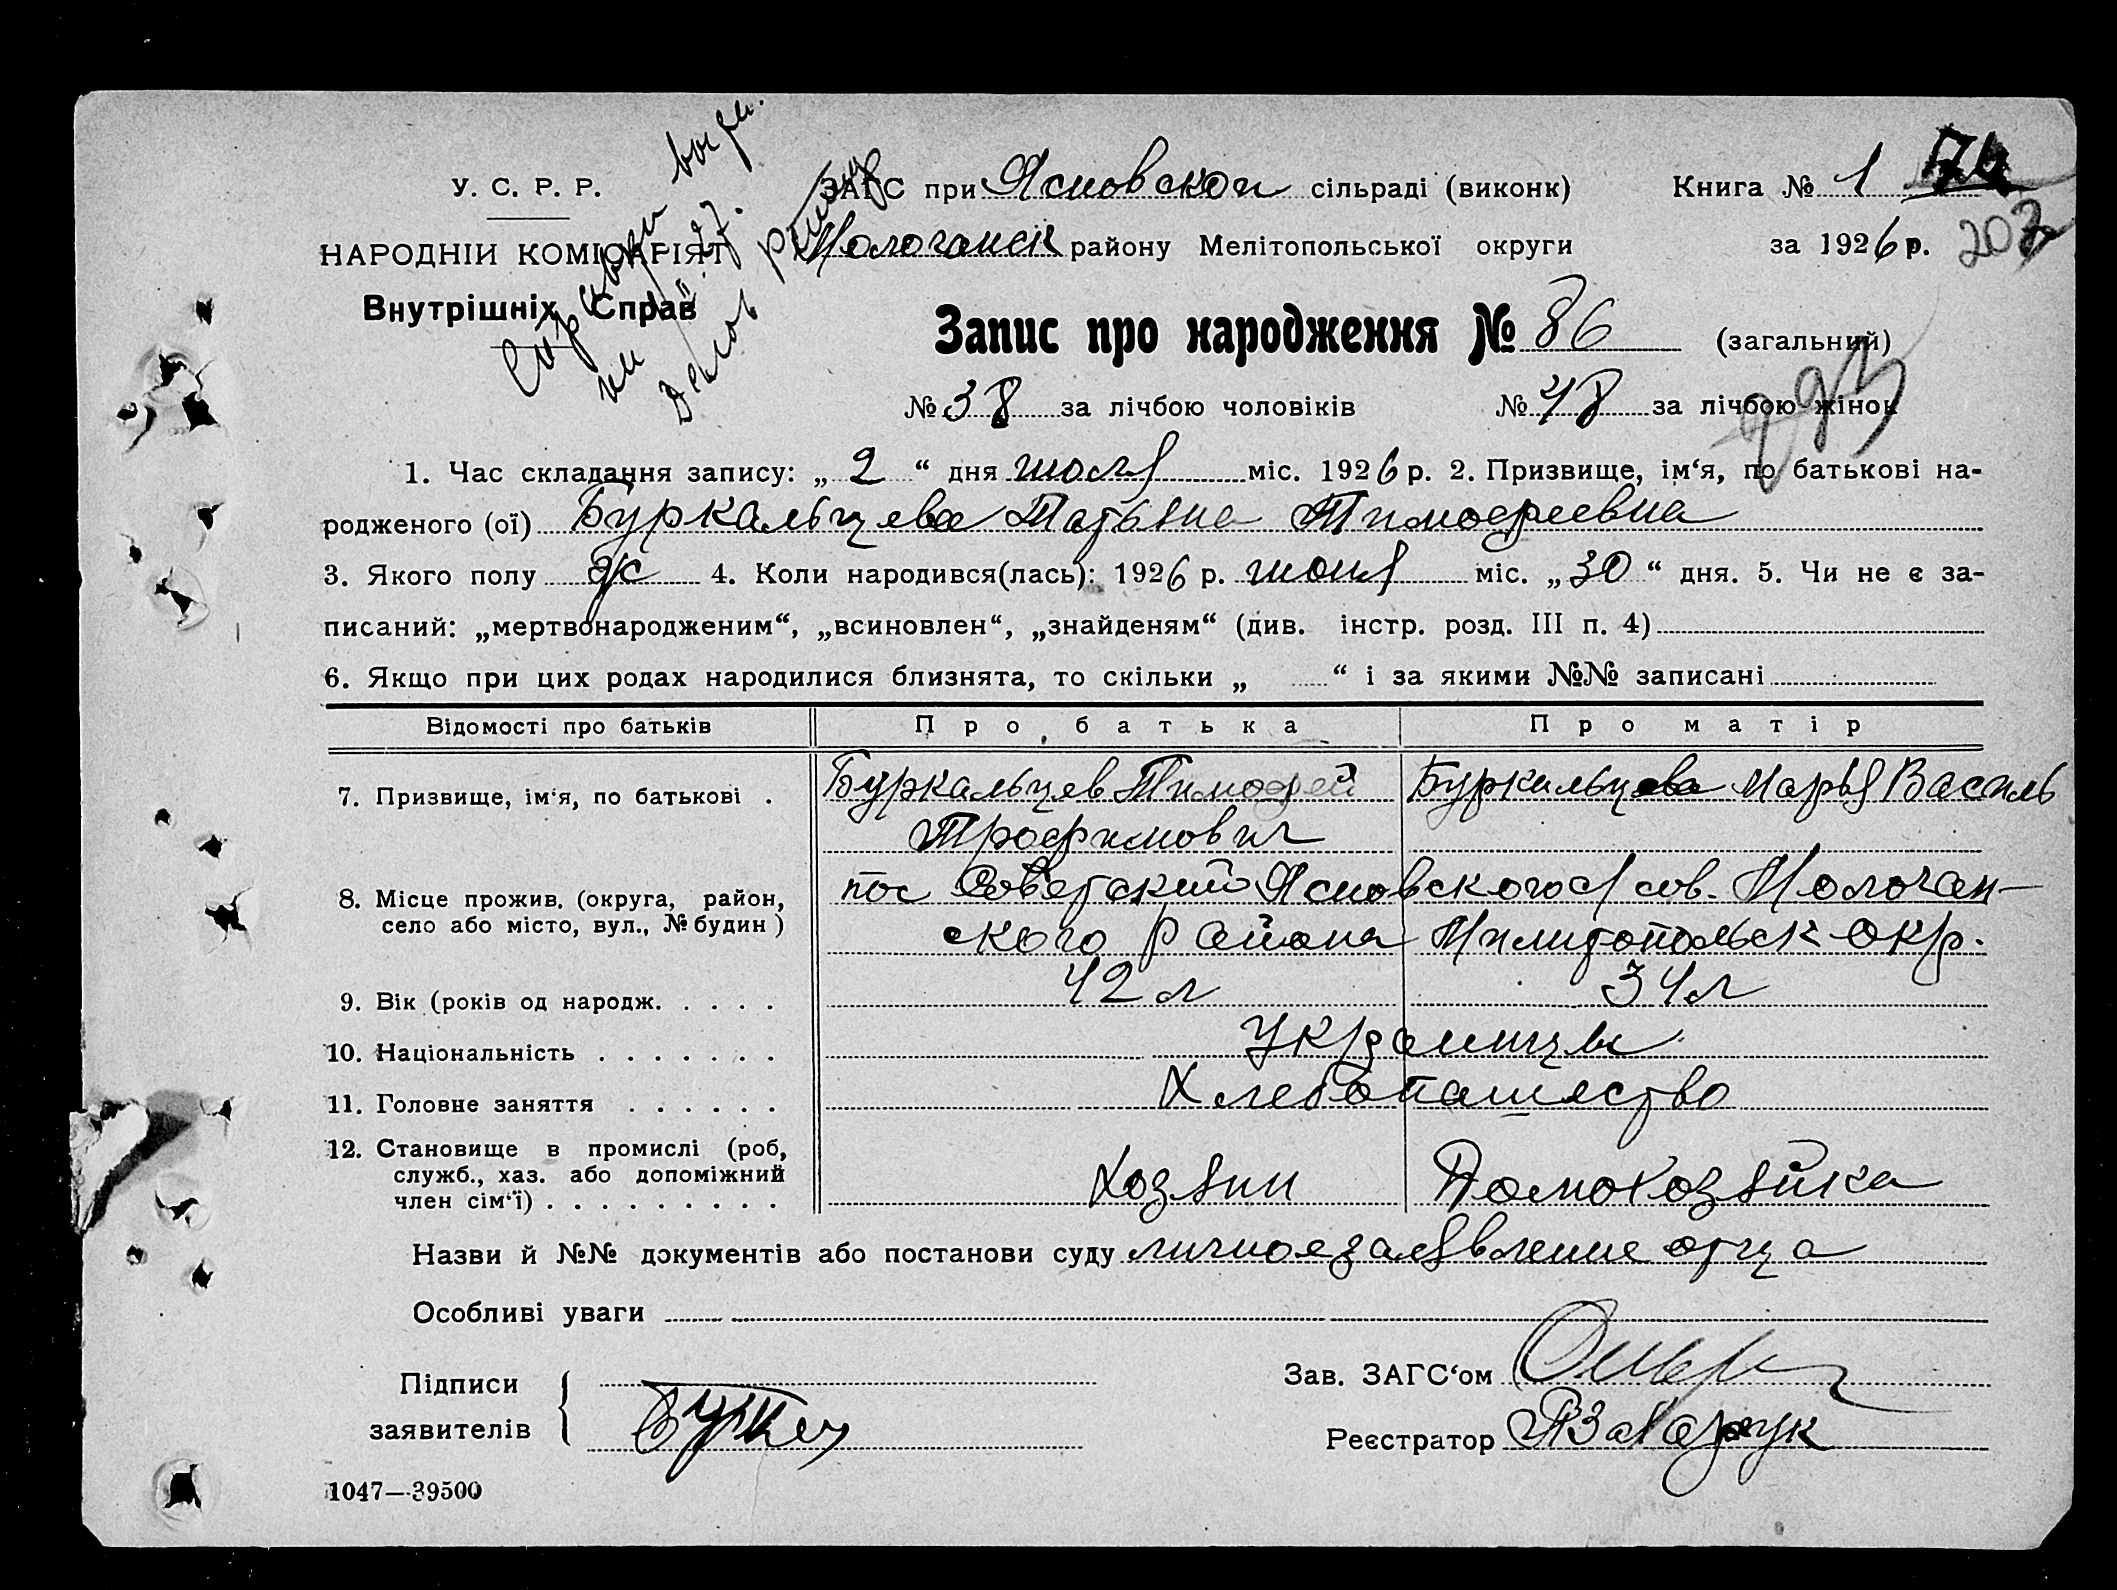 У. С. Р. Р.
НАРОДНІЙ КОМІСАРІЯТ
Внутрішніх Справ
ЗАГС при Ясновской сільраді (виконк)
Молочанск району Мелітопольської округи
Книга № 1 74
за 1926 р. 203
Запис про народження № 86 (загальний)
№ 38 за лічбою чоловіків № 48 за лічбою жінок
293
1. Час складання запису: „ 2 “ дня июля міс. 1926 р. 2. Призвище, ім‘я, по батькові на-
родженого (ої) Буркальцева Татьяна Тимофеевна
3. Якого полу ж 4. Коли народився(лась): 1926 р. июня міс. „ 30 “ дня. 5. Чи не є за-
писаний: „мертвонародженим“, „всиновлен“, „знайденям“ (див. інстр. розд. III п. 4)
6. Якщо при цих родах народилися близнята, то скільки „ “ і за якими №№ записані
Відомості про батьків Про батька Про матір
7. Призвище, ім‘я, по батькові . Буркальцев Тимофей Буркальцева Марья Василь
Трофимович
8. Місце прожив. (округа, район, пос Советский Ясновского с/сов. Молочан-
село або місто, вул., № будин) ского района Милитопольск окр.
9. Вік (років од народж. . . . . 42 л 34 л
10. Національність . . . . . . . Украинцы
11. Головне заняття . . . . . . Хлебопашество
12. Становище в промислі (роб,
служб., хаз. або допоміжний
член сім‘ї) . . . . . . . . . Хозяин Домохозяйка
Назви й №№ документів або постанови суду личное заявление отца
Особливі уваги
Підписи
заявителів
Зав. ЗАГС‘ом
Реєстратор
1047—39500